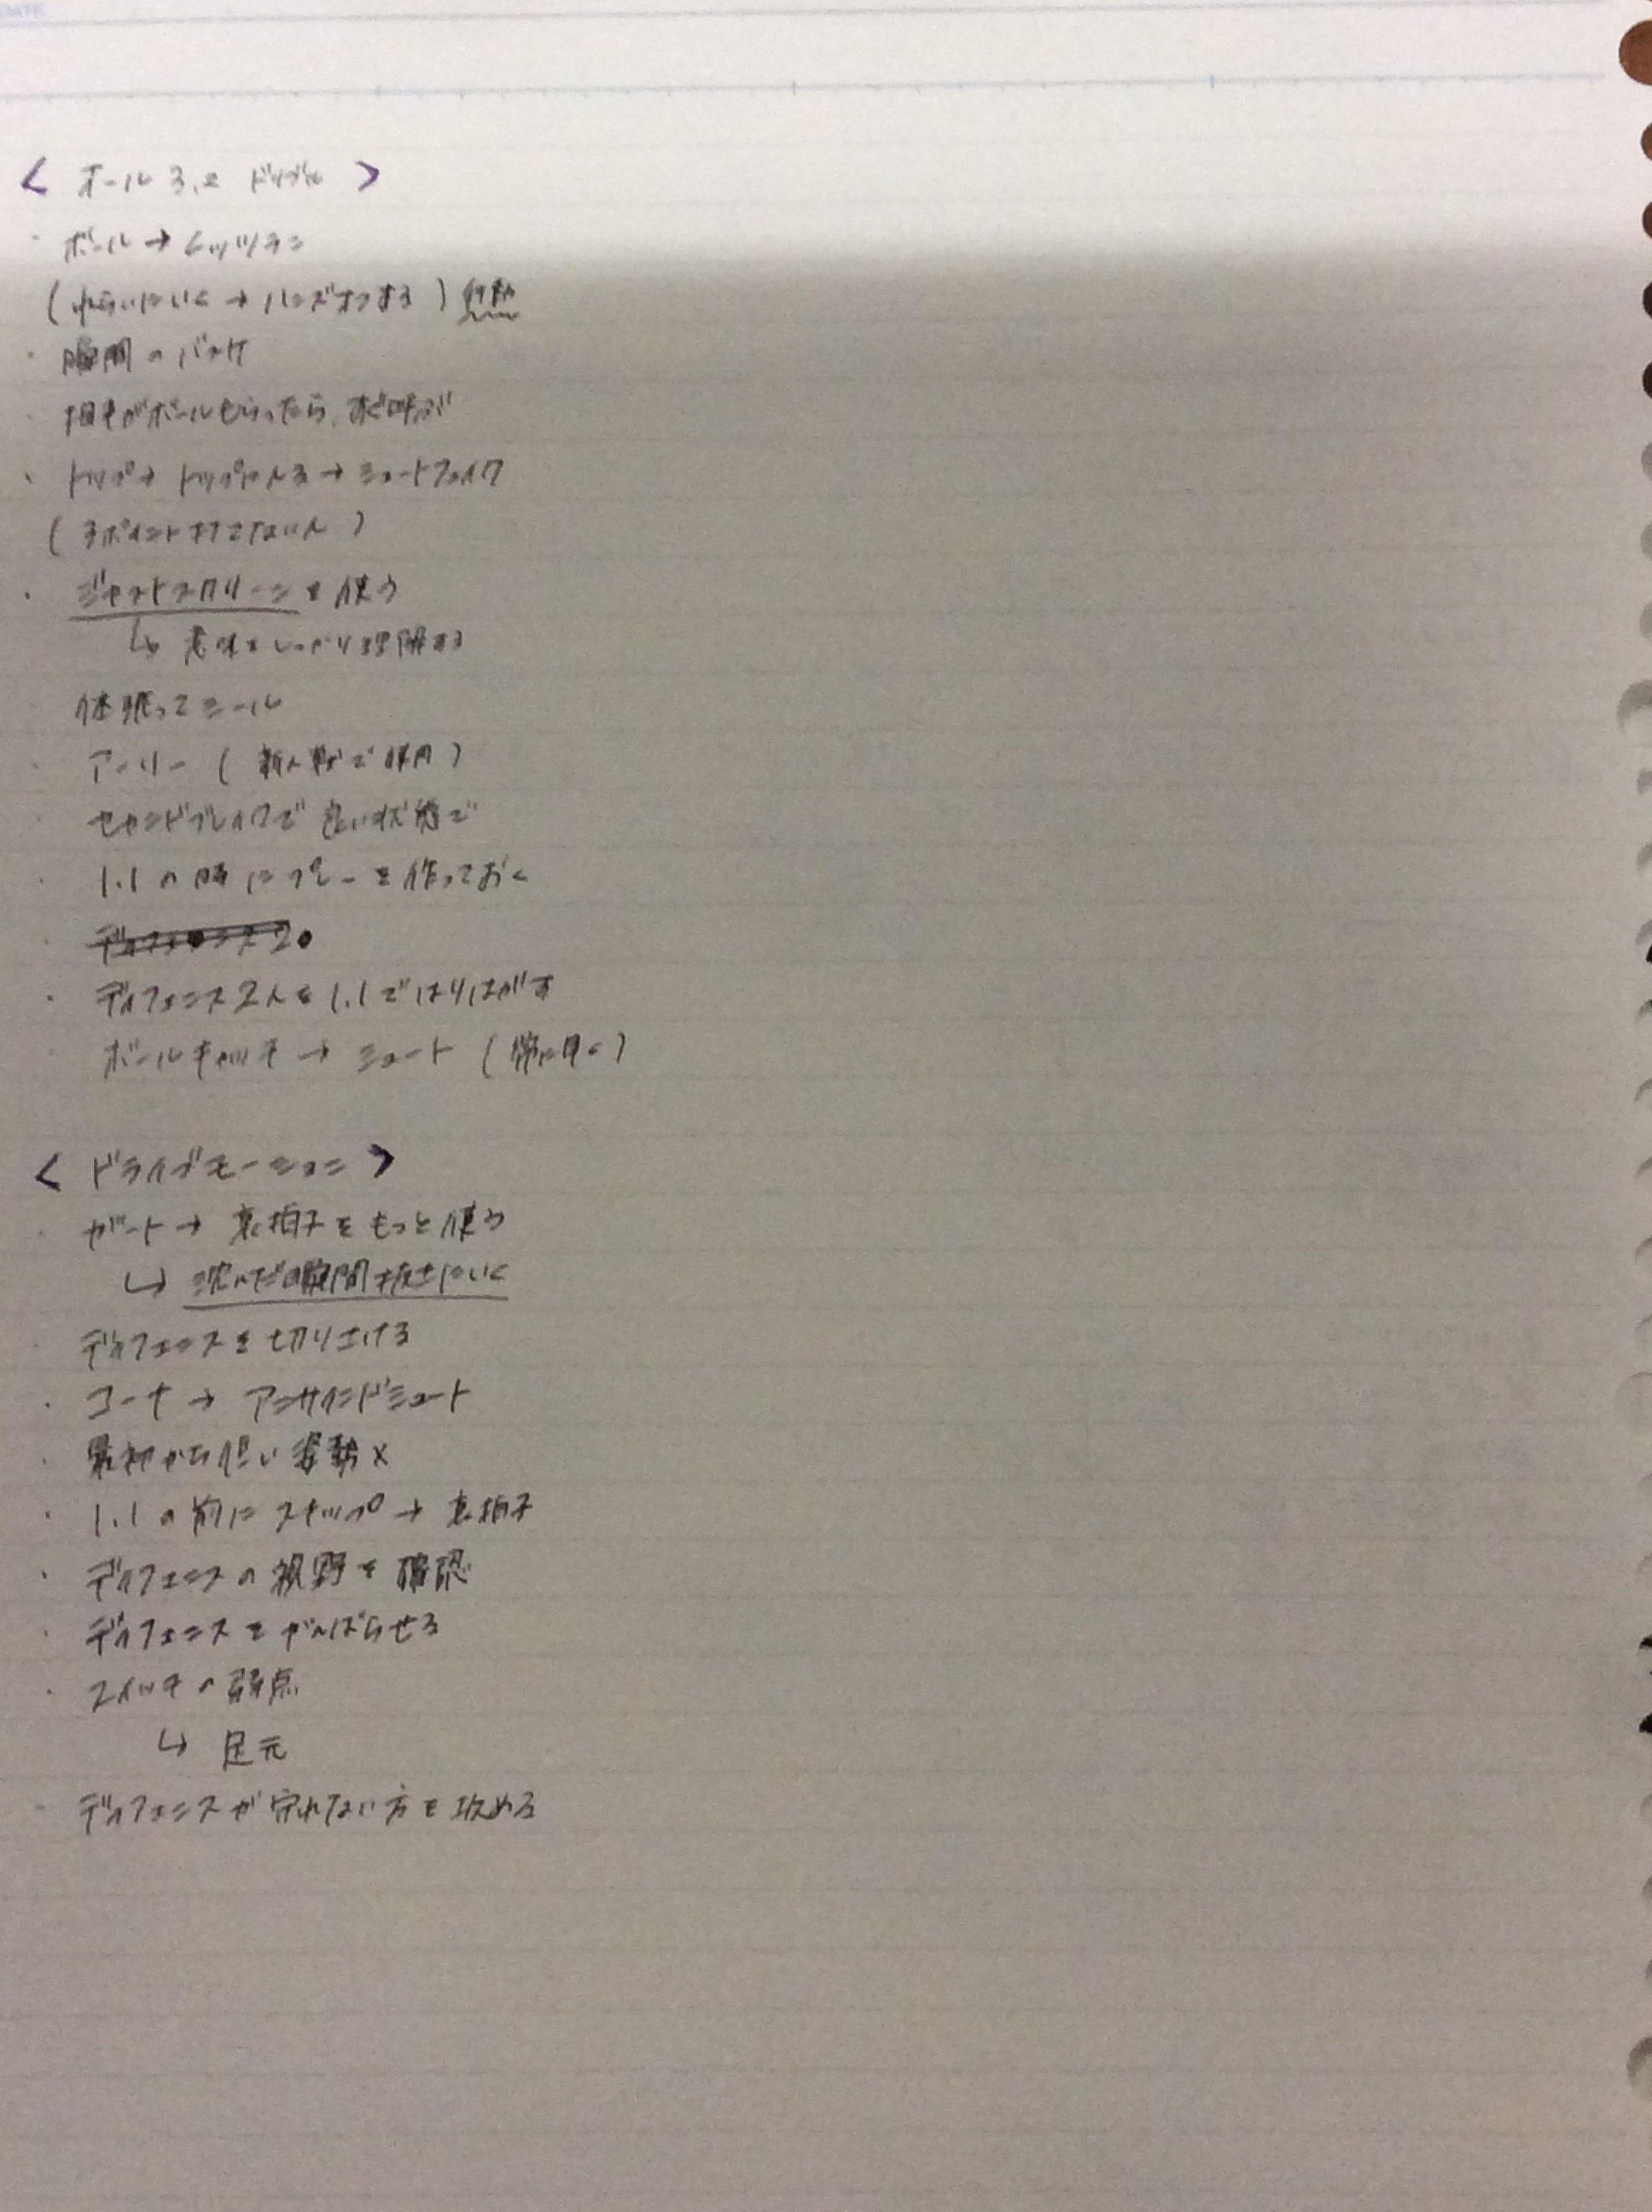 < オール 3.2 ドリブル >
・ボール→
(もらいにいく→ハンズオフする)
・瞬間のバスケ
・相手がボールもらったら、すぐ呼ぶ
・トップ→トップやんる→シュートフェイク
(3ポイント打てない人)
・ジャストスクリーンを使う
↳ 意味をしっかり理解する
体張ってシール
・アーリー(新人戦で使用)
・セカンドブレイクで良い状態で
・1.1の時にプレーを作っておく
・ディフェンス2
・ディフェンス2人を1.1ではりはがす
・ボールキャッチ→シュート(常に早く)
< ドライブモーション >
・ガート→裏拍子をもっと使う
↳ 沈んだ瞬間抜きにいく
・ディフェンスを切りさける
・コーナ→アンサインドシュート
・最初から低い姿勢×
・1.1の前にスキップ→裏拍子
・ディフェンスの視野を確認
・ディフェンスをがんばらせる
・スイッチの弱点
↳ 足元
・ディフェンスが守れない方を攻める